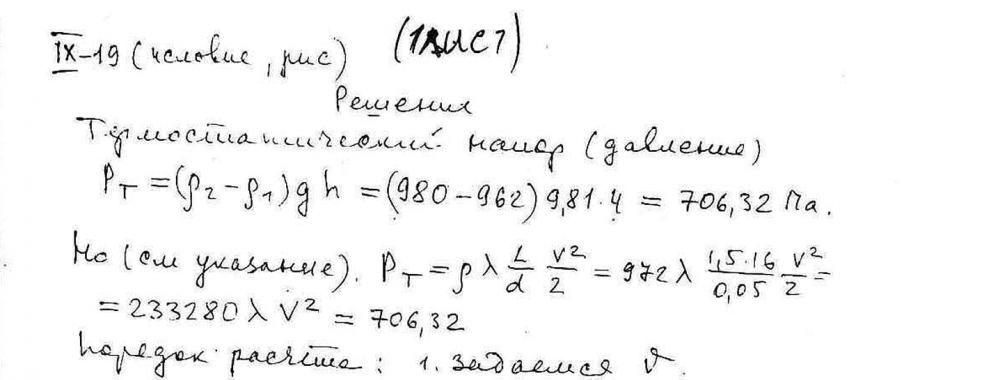 IX-19 (условие, рис) (1 лист)
Решения
Термостатический напор (давление)
P_T = (ρ_2 - ρ_1) g h = (980 - 962) 9,81·4 = 706,32 Па.
Но (см указание). P_T = ρ λ L/d V²/2 = 972 λ 1,5·16/0,05 V²/2 =
= 233280 λ V² = 706,32
Порядок расчёта: 1. Задаемся ϑ.